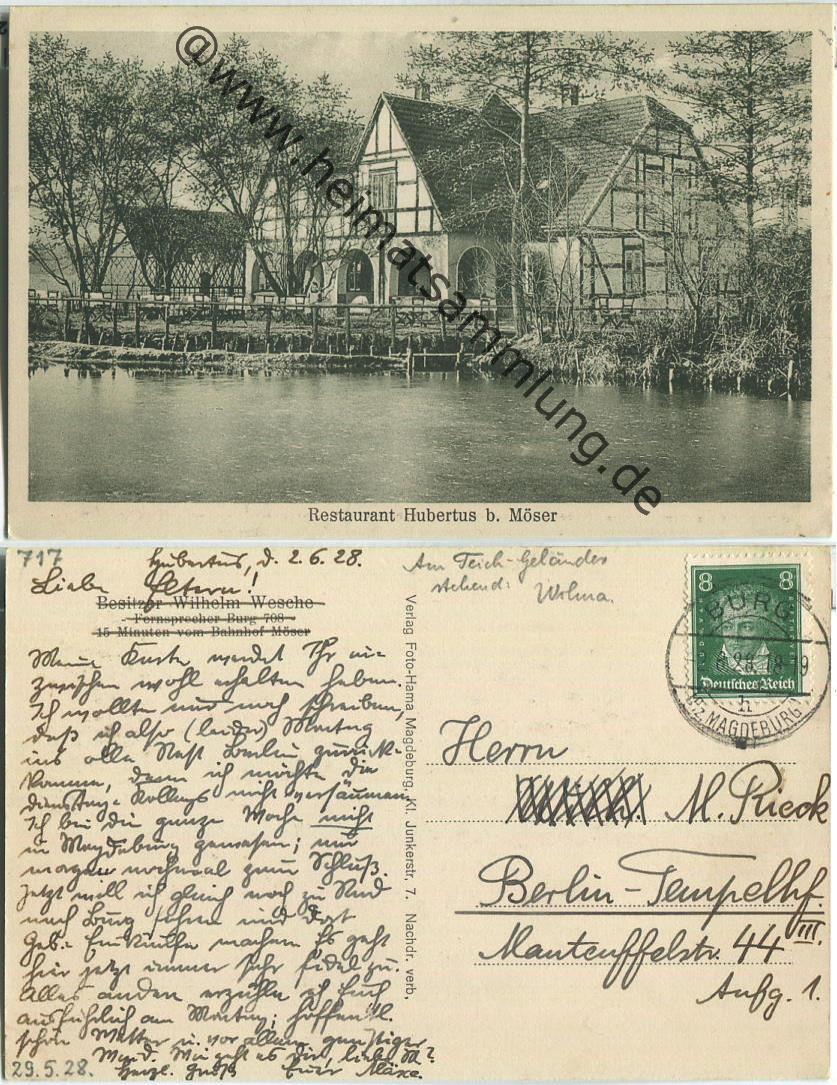 @www.heimatsammlung.de
Restaurant Hubertus b. Möser
717
Hubertus, d. 2.6.28.
Liebe Eltern!
Besitzer Wilhelm Wesche
Fernsprecher Burg 708
15 Minuten vom Bahnhof Möser
Meine Karte werdet Ihr in-
zwischen wohl erhalten haben.
Ich wollte nur noch schreiben,
daß ich also (leider) Montag
ins olle Nest Berlin zurück-
komme, denn ich möchte die
Dienstag-Kollegs nicht versäumen.
Ich bin die ganze Woche nicht
in Magdeburg gewesen; nur
morgen nochmal zum Schluß.
Jetzt will ich gleich noch zu Rad
nach Burg fahren und dort
Geb.- Einkäufe machen. Es geht
hier jetzt immer sehr fidel zu.
Alles andere erzähle ich Euch
ausführlich am Montag; hoffentl.
schön Wetter u. vor allem günstiger
Wind. Wie geht es dir, liebe
Herzl. Gruß Euer
29.5.28.
Am Teich-Geländer
stehend: Wilma.
Verlag Foto-Hama Magdeburg, Kl. Junkerstr. 7. Nachdr. verb.
8 8
Deutsches Reich
BURG
28.18-9
h
(Bz. MAGDEBURG)
Herrn
M. Rieck
Berlin-Tempelhf.
Manteuffelstr. 44 III.
Aufg. 1.